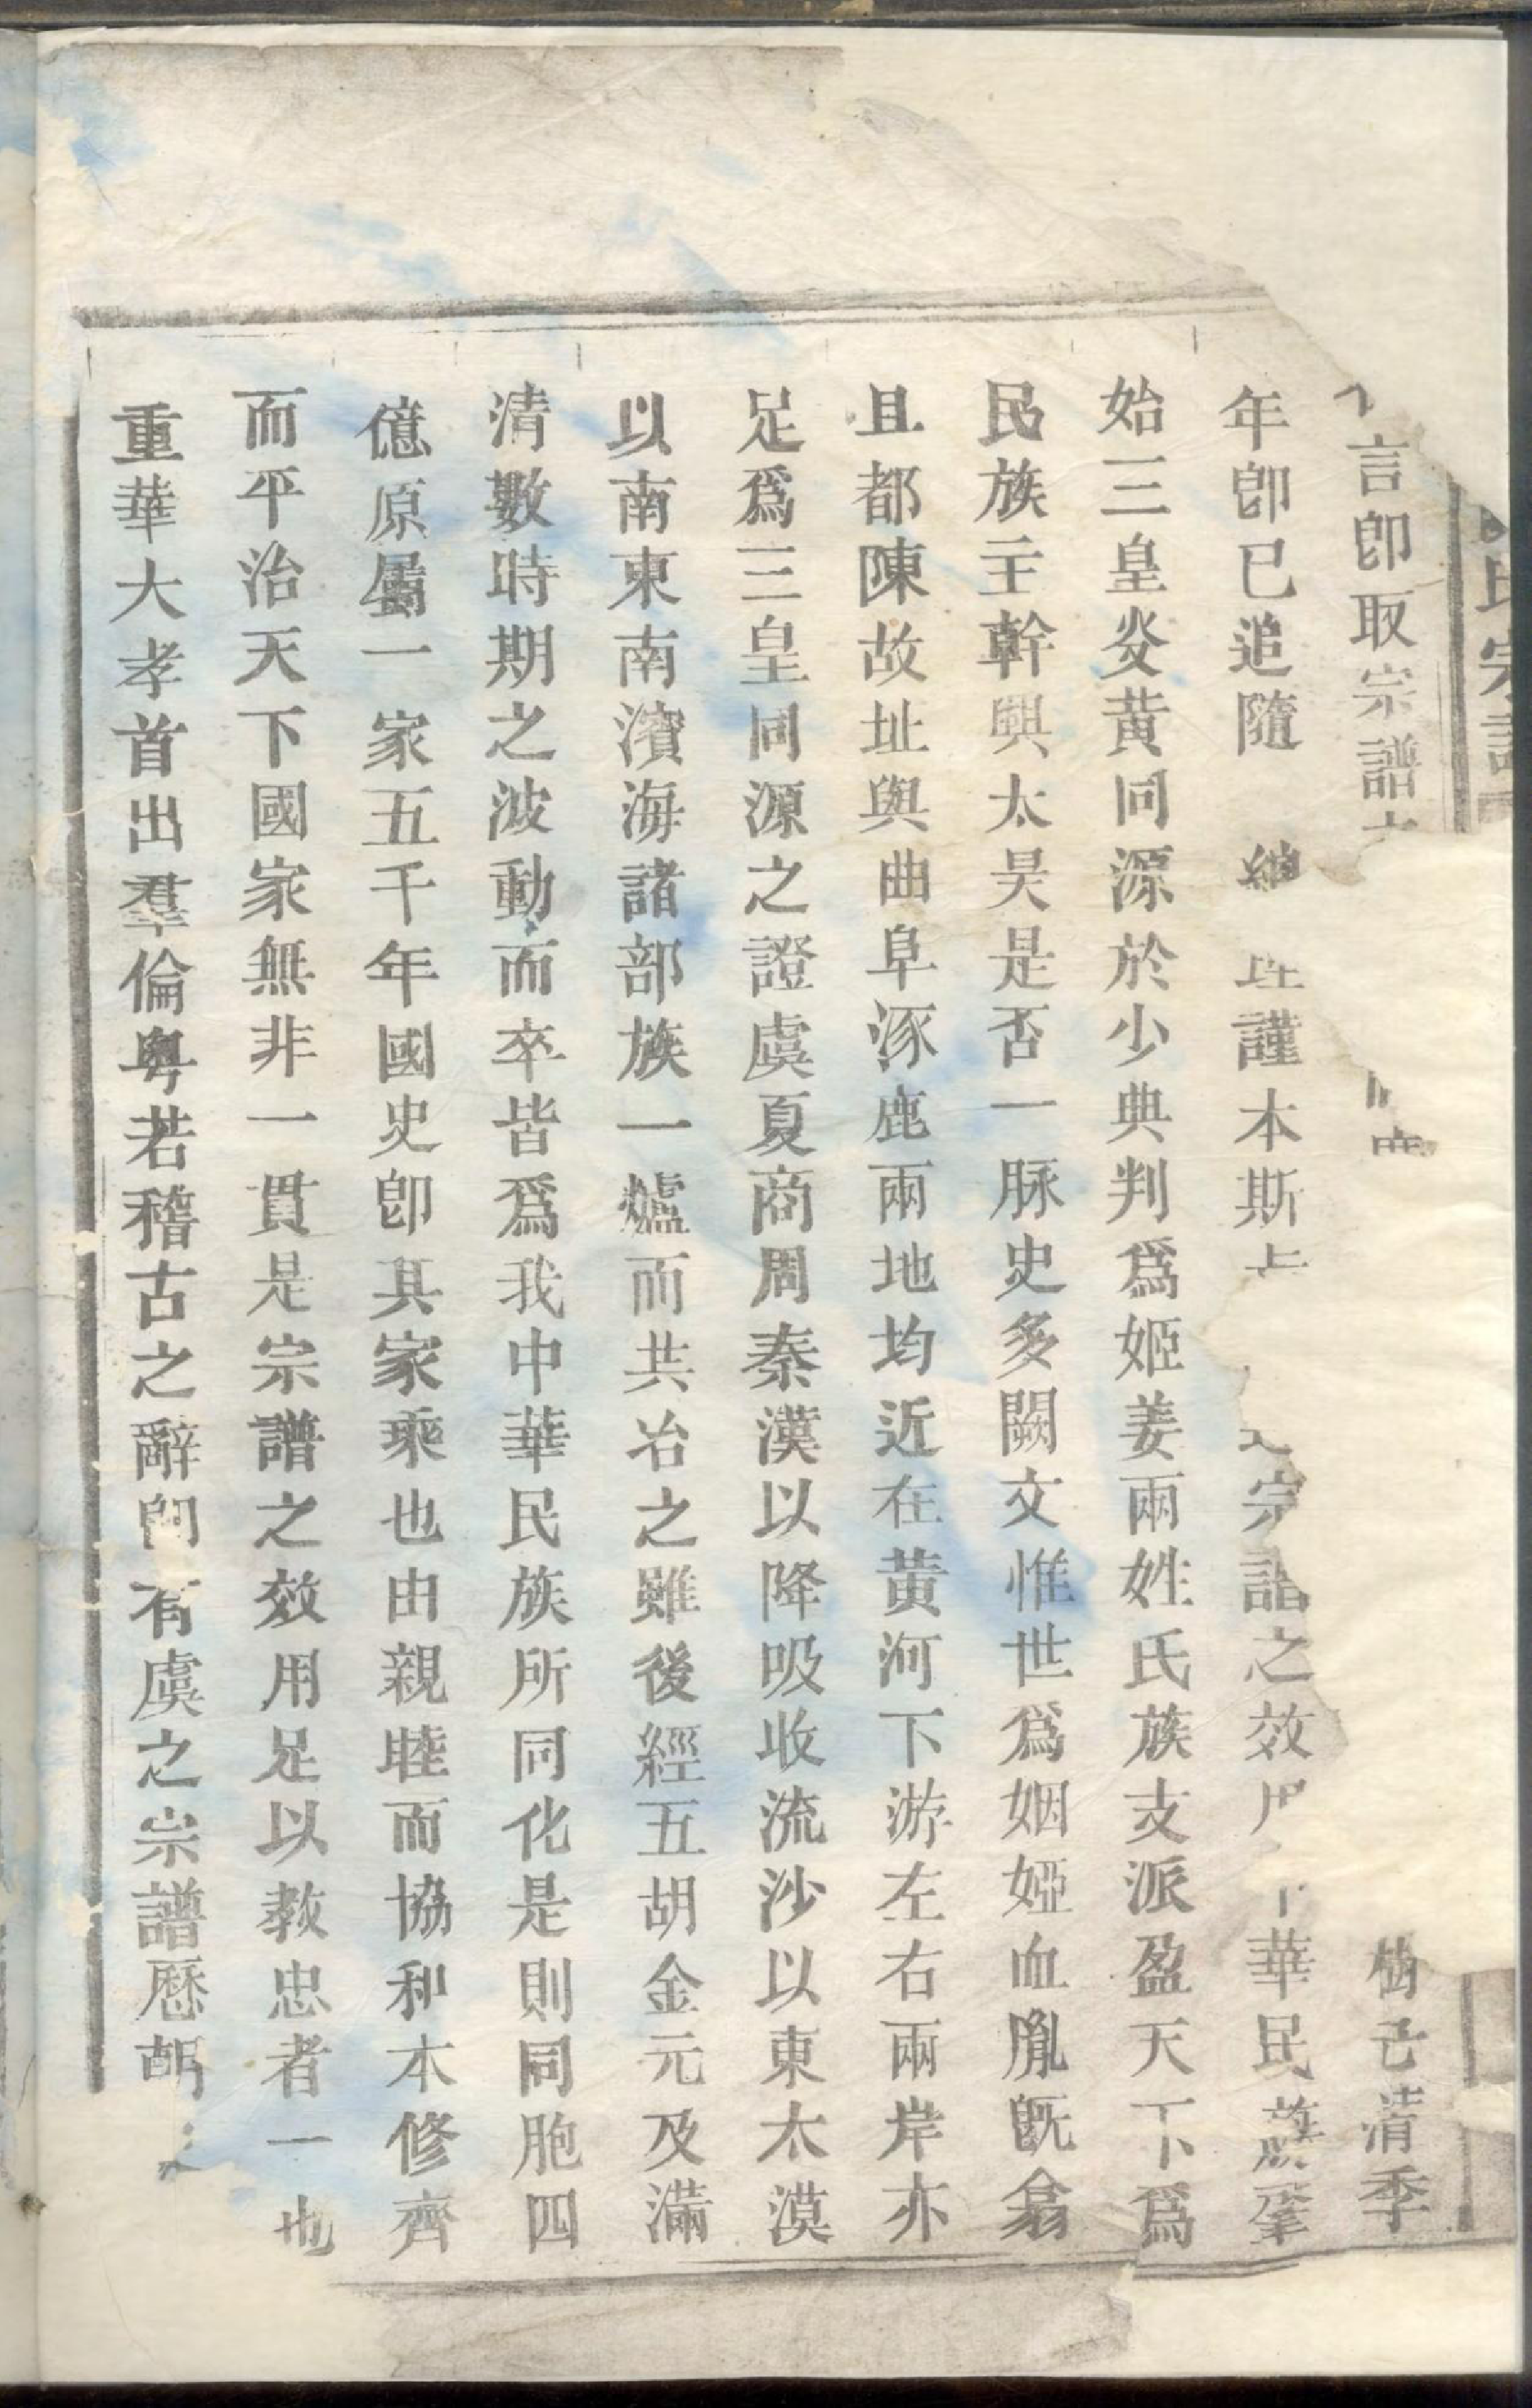 氏宗譜
言卽取宗譜 樹 己清季
年卽已追隨 總理謹本斯 宗譜之效 華民族肇
始三皇炎黃同源於少典判爲姬姜兩姓氏族支派盈天下爲
民族主幹與太昊是否一脉史多闕文惟世爲姻婭血胤旣翕
且都陳故址與曲阜涿鹿兩地均近在黃河下游左右兩岸亦
足爲三皇同源之證虞夏商周秦漢以降吸收流沙以東大漠
以南東南濱海諸部族一爐而共冶之雖後經五胡金元及滿
清數時期之波動而卒皆爲我中華民族所同化是則同胞四
億原屬一家五千年國史卽其家乘也由親睦而協和本修齊
而平治天下國家無非一貫是宗譜之效用足以敎忠者一也
重華大孝首出羣倫粤若稽古之辭卽有虞之宗譜歷朝